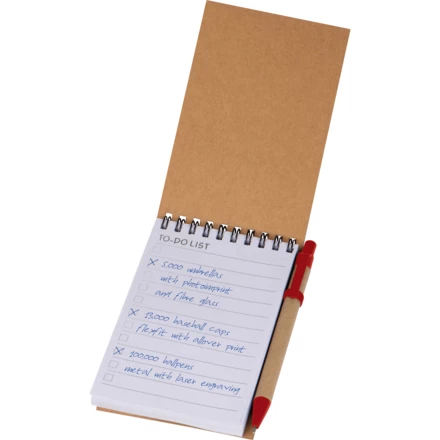 TO-DO LIST
5.000 umbrellas
with photoimprint
and fibre glass
13.000 baseball caps
flexfit with allover print
200.000 ballpens
metal with laser engraving